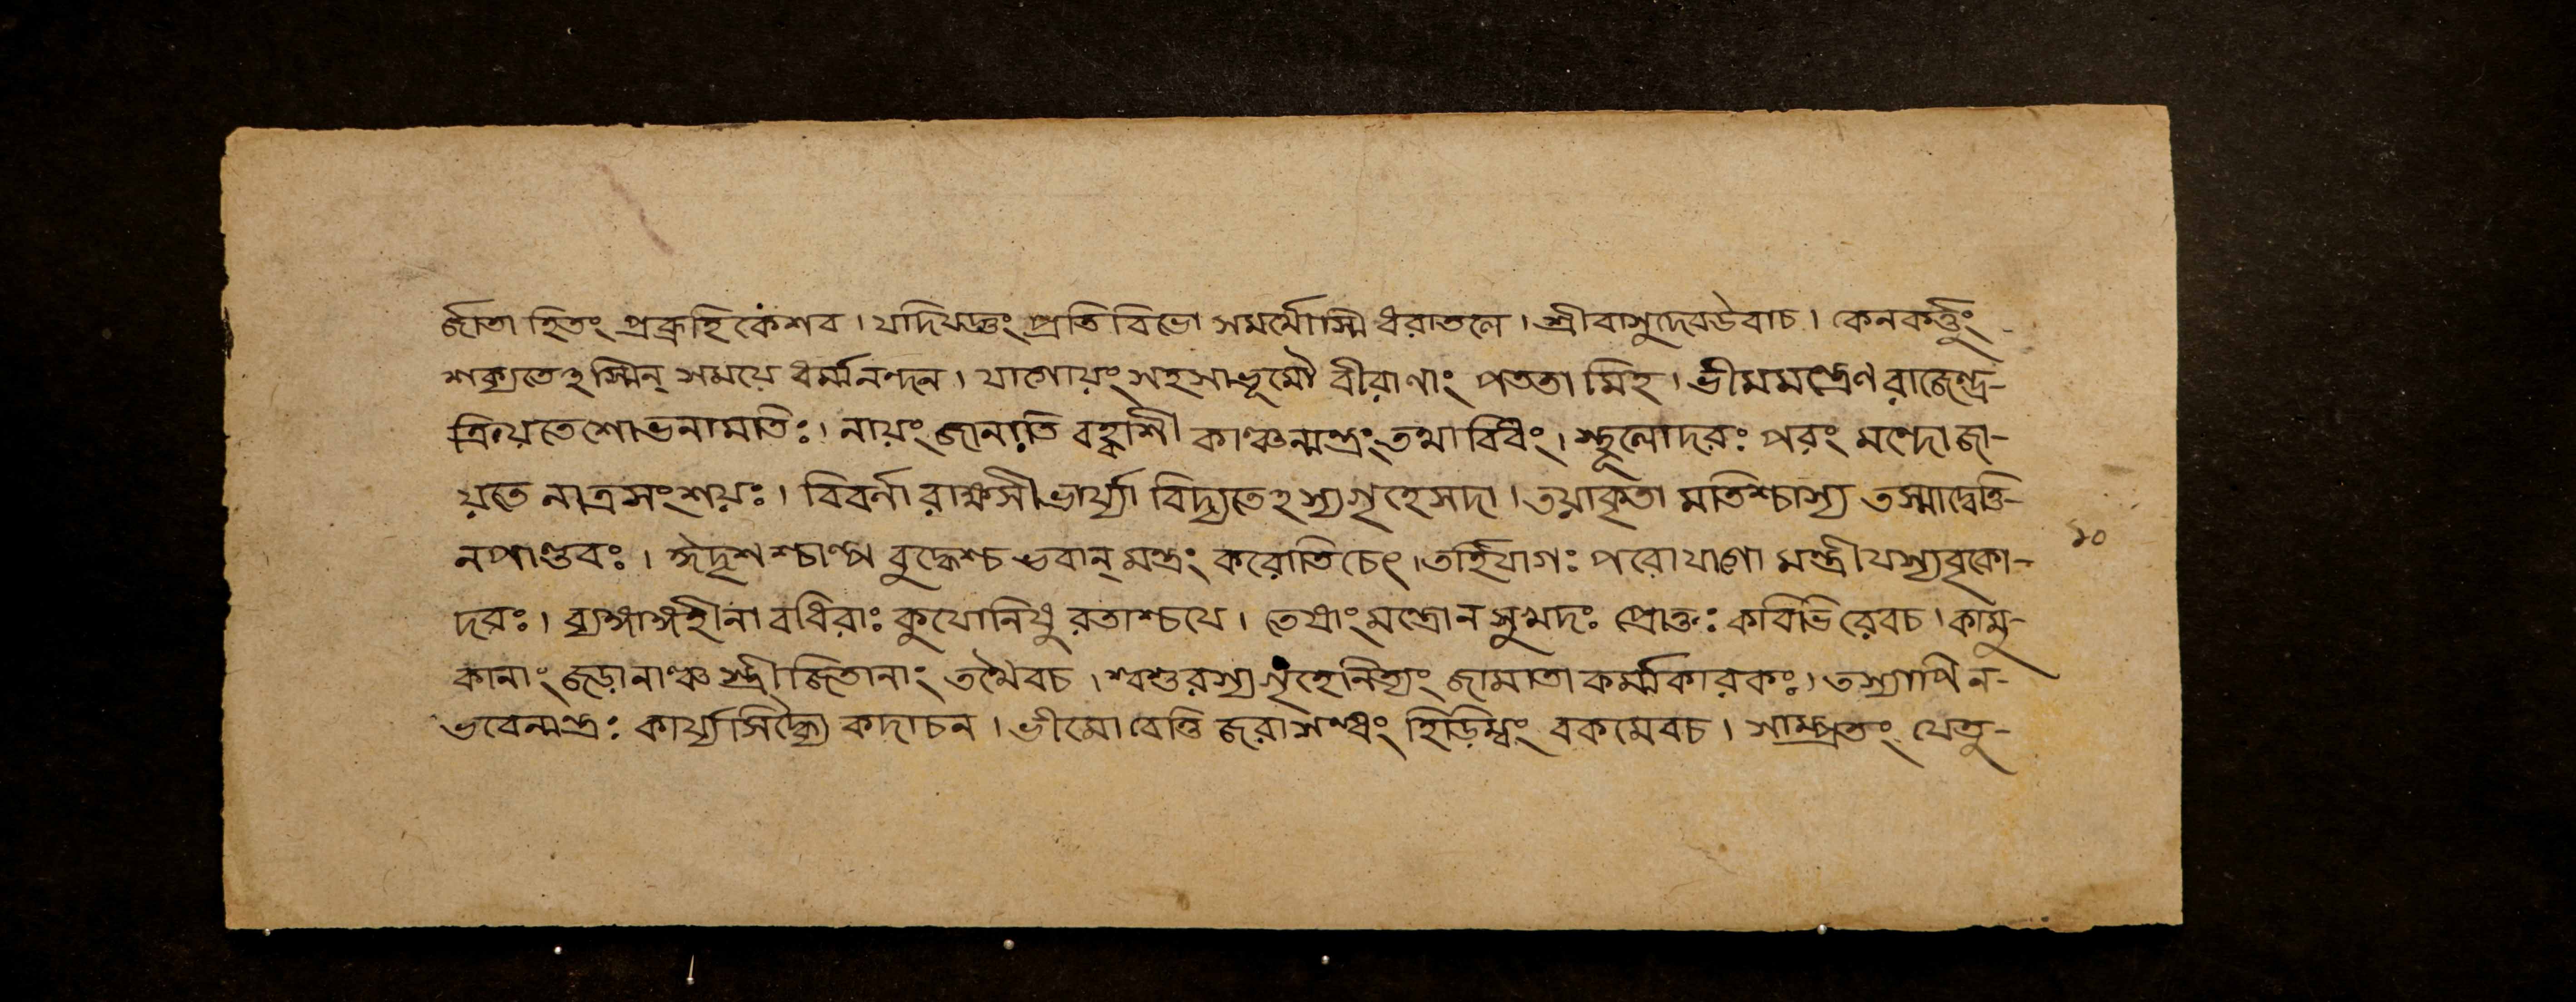 র্জাতা হিতং প্রব্রূহি কেশব। যদি যজ্ঞং প্রতি বিভো সমর্থোস্মি ধরাতলে। শ্রীবাসুদেবউবাচ। কেনকর্ত্তুং
শক্যতেঽস্মিন্ সময়ে ধর্ম্মনন্দন। যাগোয়ং সহসা ভূমৌ বীরাণাং পততা মিহ। ভীমমন্ত্রেণ রাজেন্দ্র-
ক্রিয়তে শোভনামতিঃ। নায়ং জানাতি বহ্বাশী কাঞ্চন্মন্ত্রং তথাবিধং। স্থূলোদরঃ পরং মন্দো জা-
য়তে নাত্রসংশয়ঃ। বিবর্না রাক্ষসী ভার্য্যা বিদ্যতেঽস্যগৃহেসদা। তয়াকৃতা মতিশ্চাস্য তস্মাদ্বেত্তি-
নপাণ্ডবঃ। ঈদৃশশ্চাল্প বুদ্ধেশ্চ ভবান্ মন্ত্রং করোতিচেৎ। তর্হিযাগঃ পরোযাগো মন্ত্রীযস্যবৃকো-
দরঃ। ব্যঙ্গাঙ্গহীনা বধিরাঃ কুযোনিষু রতাশ্চযে। তেষাং মন্ত্রোন সুখদঃ প্রোক্তঃ কবিভিরেবচ। কামু-
কানাং জড়ানাঞ্চ স্ত্রীজিতানাং তথৈবচ। শ্বশুরস্যগৃহেনিত্যং জামাতা কর্ম্মকারকঃ। তস্যাপিন-
ভবেন্মন্ত্রঃ কার্য্যসিদ্ধ্যৈ কদাচন। ভীমো বেত্তি জরাসন্ধং হিড়িম্বং বকমেবচ। সাম্প্রতং যেতু-
১০